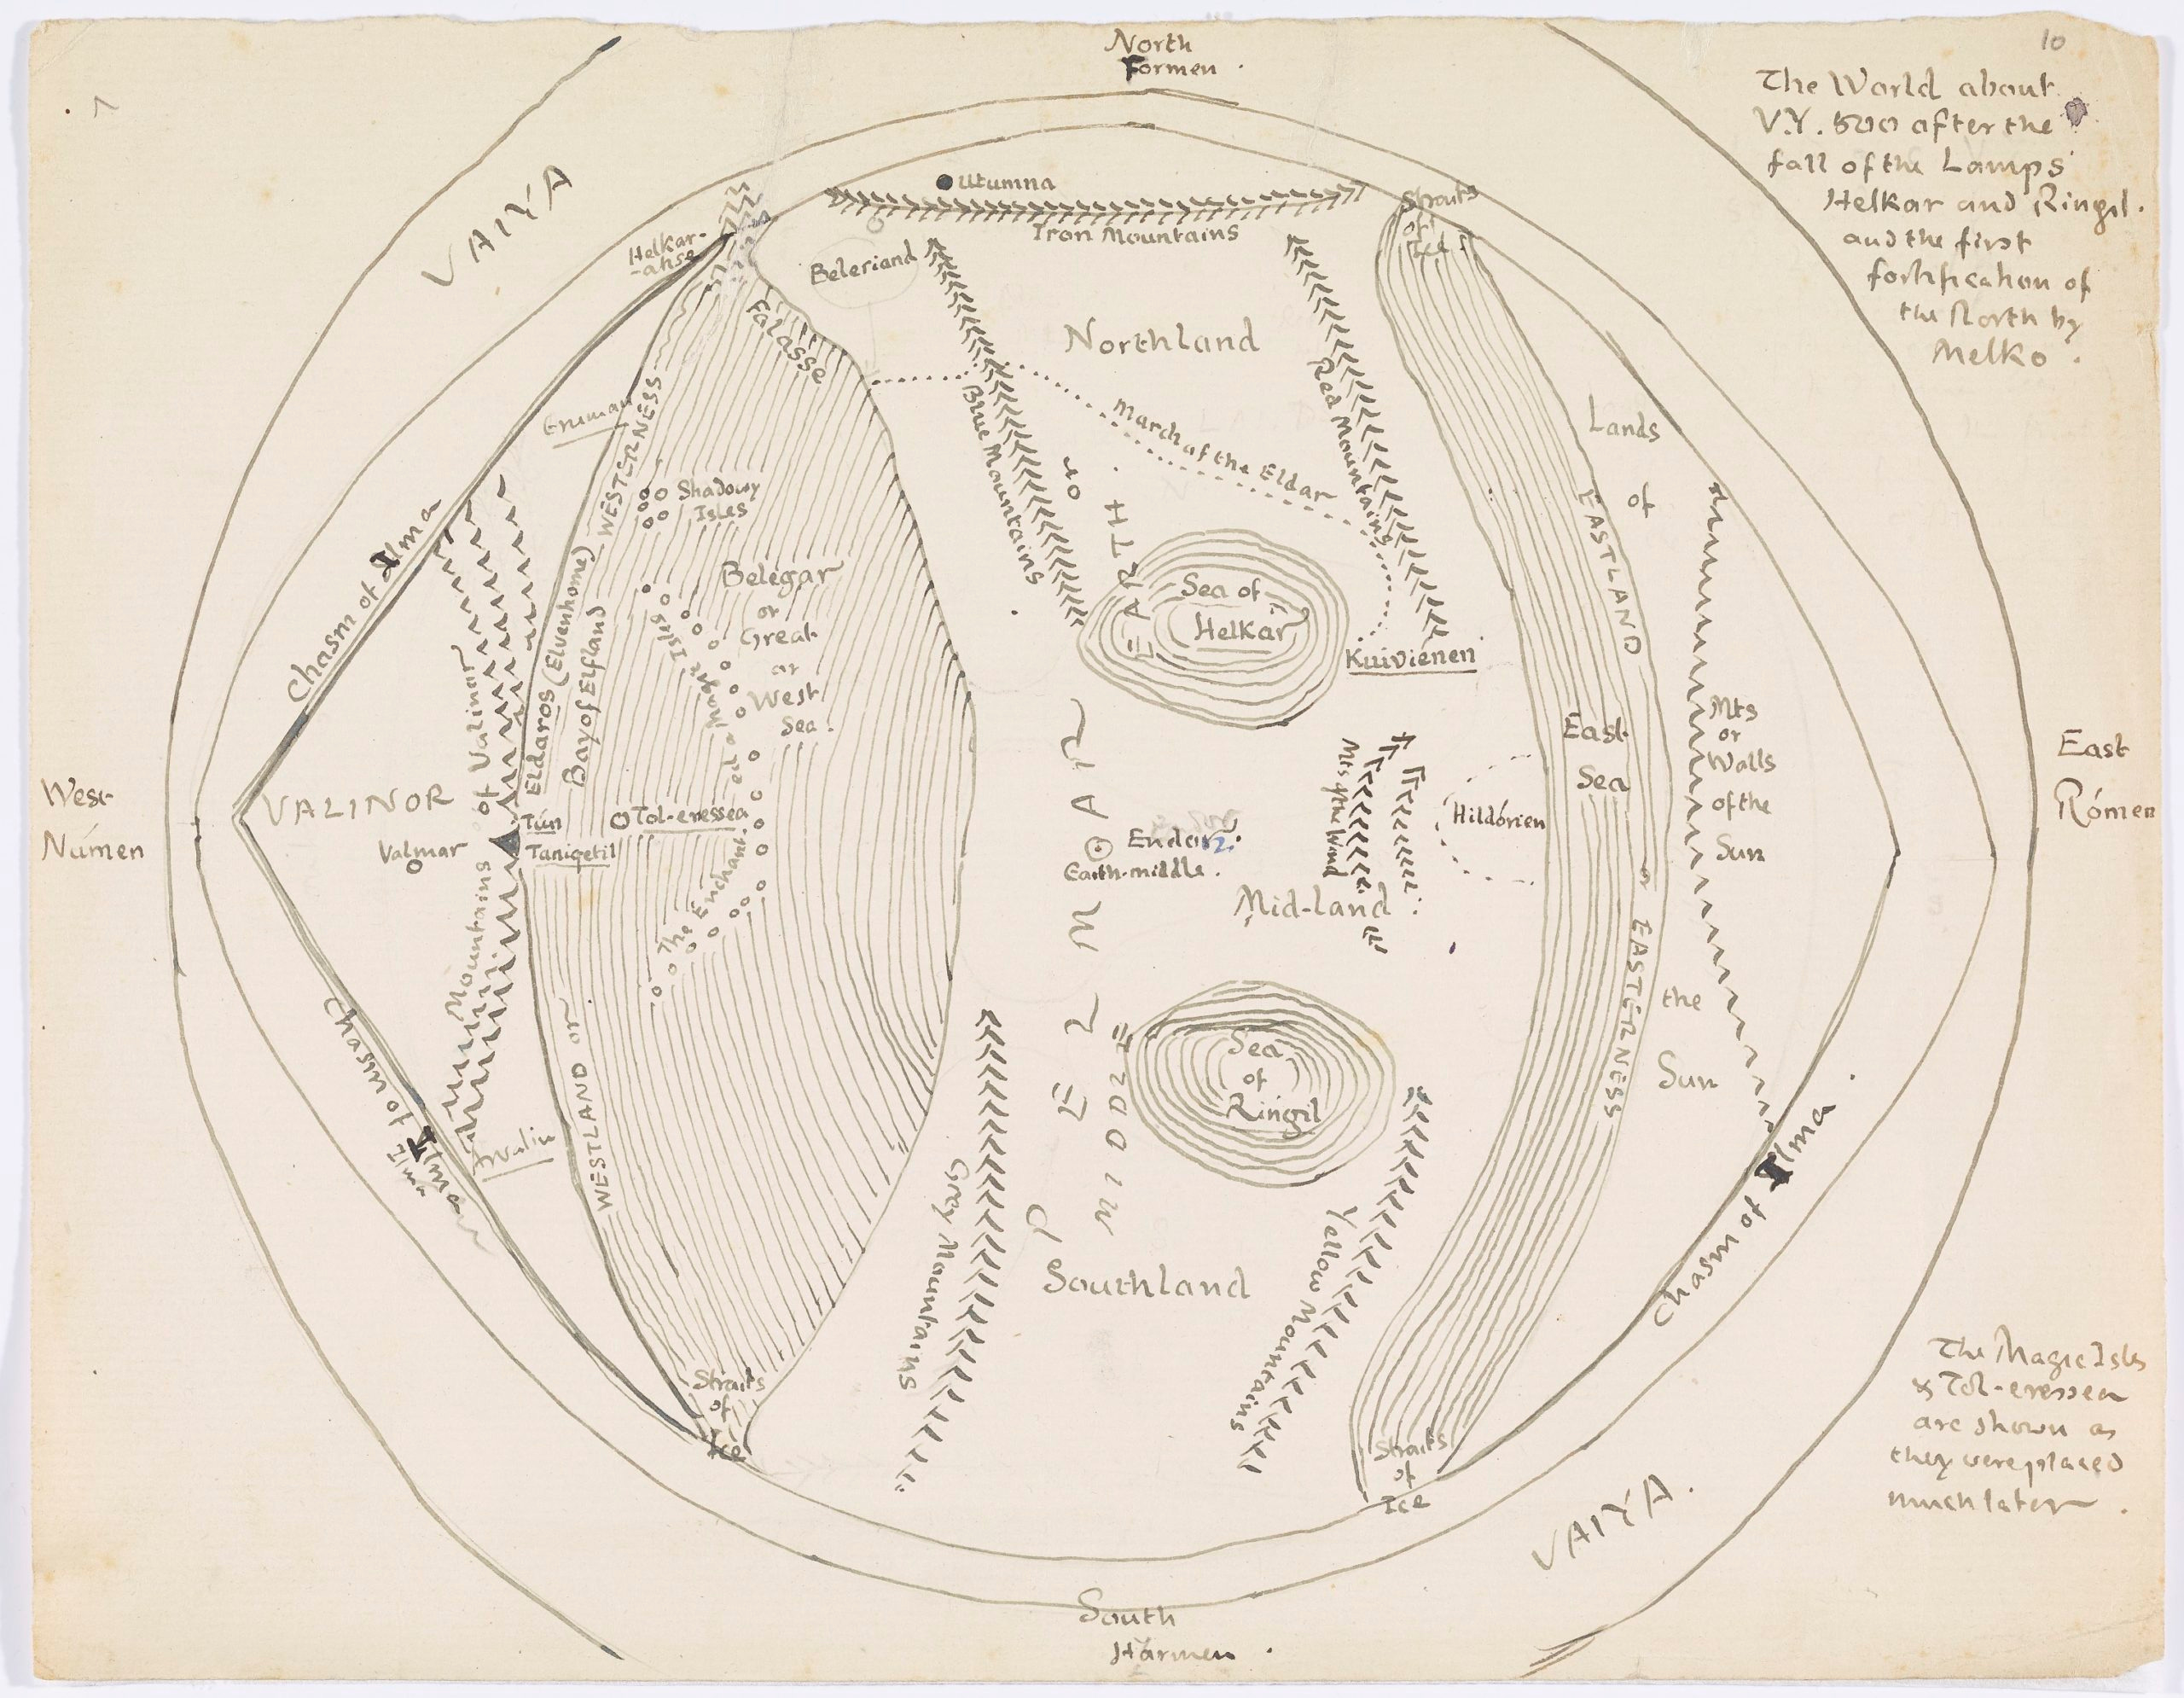 North
Formen.
10
The World about
V.Y. 500 after the
fall of the Lamps
Helkar and Ringil.
and the first
fortification of
the North by
Melko.
VAIYA
Utumna
Iron Mountains
Straits
of
Ice.
Helkar-
-akse
Beleriand
Falasse
Northland
Eruman
WESTERNESS
Blue Mountains
March of the Eldar
Red Mountains
Lands
of
the
Sun
EASTLAND
or
EASTERNESS
Shadowy
Isles
Chasm of Ilma
Belegar
or
Great
or
West
Sea.
Sea of
Helkar
Kuiviénen
Eldaros (Elvenhome)
Bay of Elfland
The Enchanted or Magic Isles
PELMAR
or
MIDDLE
EARTH.
East
Sea
Mts
or
Walls
of the
Sun
West
Númen
VALINOR
Valmar
Mountains of Valinor
Tún
Taniqetil
Tol-eressea
Endor.
Earth-middle.
Mts of the Wind
Hildórien
Mid-land.
East
Rómen
Sea
of
Ringil
Chasm of Ilma
Ilma
WESTLAND or
Grey Mountains
Southland
Yellow Mountains
Chasm of Ilma
Straits
of
Ice
Straits
of
Ice
VAIYA.
The Magic Isles
& Tol-eressea
are shown as
they were placed
much later.
South
Harmen.